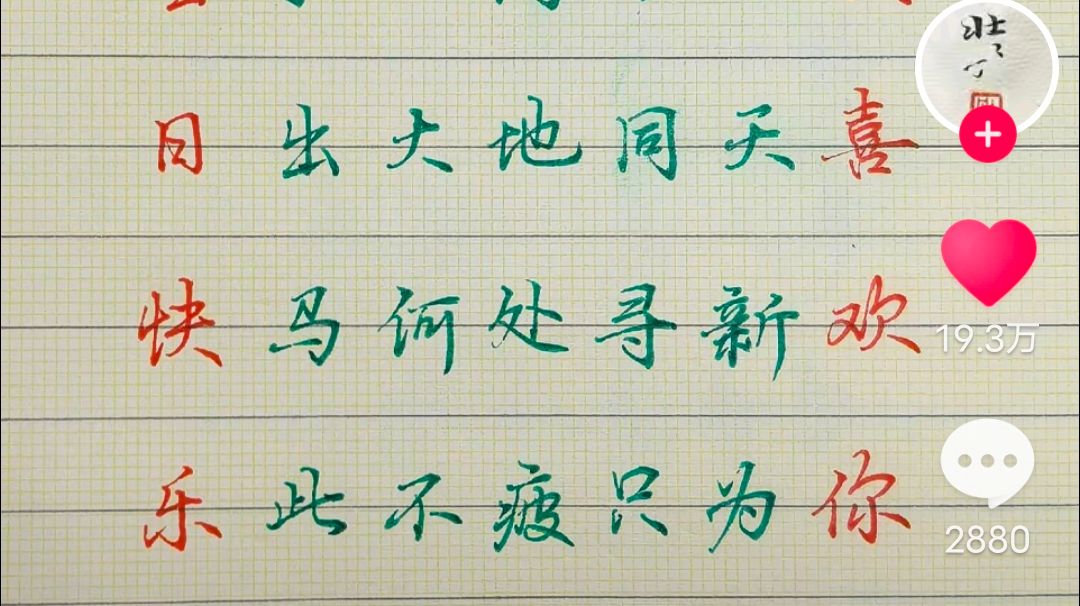 日出大地同天喜
快马何处寻新欢
19.3万
乐此不疲只为你
2880